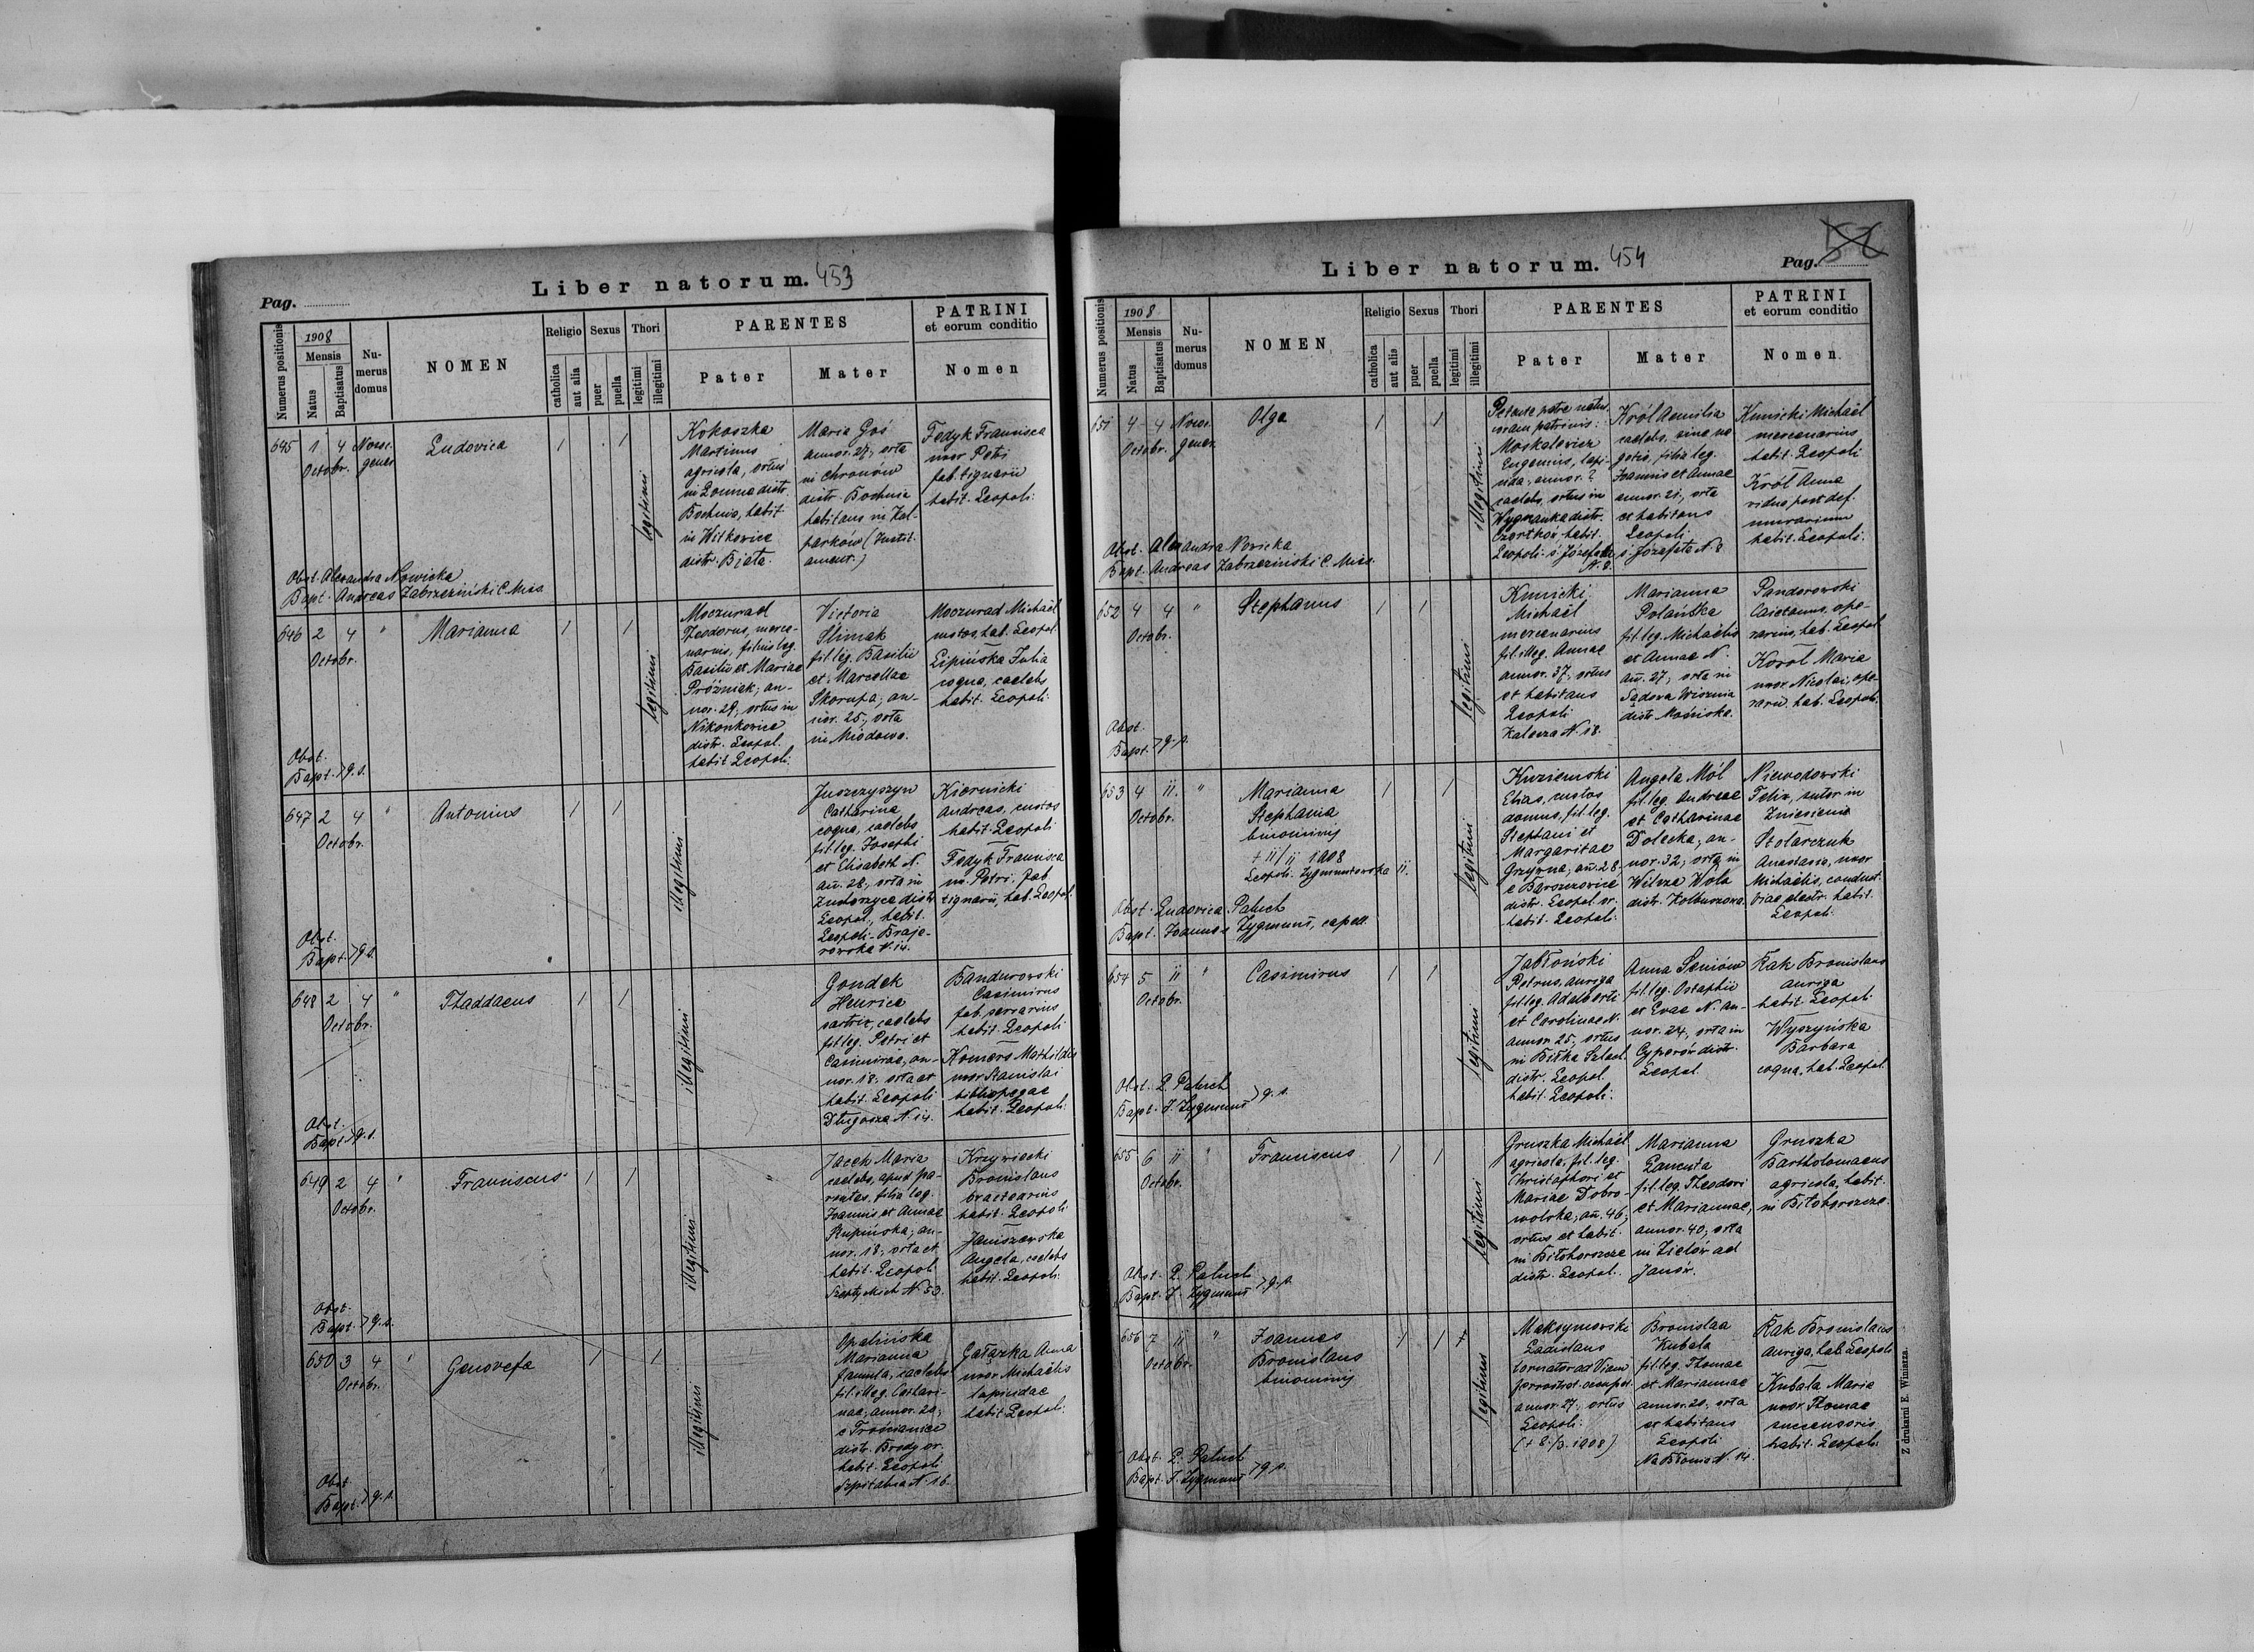 Liber natorum. 453
Pag.
Numerus positionis
1908
Mensis
Natus
Baptisatus
Nu-
merus
domus
NOMEN
Religio
catholica
aut alia
Sexus
puer
puella
Thori
legitimi
illegitimi
PARENTES
Pater
Mater
PATRINI
et eorum conditio
Nomen
645 1 4 Nosoc.
Octobr. gener.
Ludovica
1 1
legitimi
Kokoszka
Martinus
agricola, ortus
in Łomna distr.
Bochnia, habit
in Witkowice
distr. Biała.
Maria Goś
annor. 27, orta
in Chronów
distr. Bochnia
habitans in Kul-
parków (Instit.
ament.)
Fedyk Francisca
uxor Petri
fab. tignarii
habit. Leopoli.
Obst. Alexandra Nowicka
Bapt. Andreas Zabrzeziński C. Miss.
646 2 4 "
Octobr.
Marianna
1 1
legitimi
Moczurad
Teodorus, merce-
narius, filius leg.
Basilii et Mariae
Próżniak, an-
nor. 29, ortus in
Nikonkowice
distr. Leopol.
habit Leopoli.
Victoria
Ślimak
fil. leg. Basilii
et Marcellae
Skorupa, an-
nor. 25, orta
in Miodowa.
Moczurad Michaël
custos, hab. Leopol.
Lipińska Julia
coqua, caelebs
habit. Leopoli.
Obst.
Bapt. > q. s.
647 2 4 "
Octobr.
Antonius
1 1
illegitimi
Juszczyszyn
Catharina
coqua, caelebs
fil. leg. Josephi
et Elisabeth N.
ann. 28, orta in
distr.
Leopol., habit.
Leopoli - Braje-
rowska N. 14.
Kiernicki
Andreas, custos
habit. Leopoli
Fedyk Francisca
ux. Petri, fab.
tignarii, hab. Leopol.
Obst.
Bapt. > q. s.
648 2 4 "
Octobr.
Thaddaeus
1 1
illegitimi
Gondek
Henrica
sartrix, caelebs
fil. leg. Petri et
Casimirae, an-
nor. 18, orta et
habit. Leopoli
Długosza N. 14.
Bandurowski
Casimirus
fab. serrarius
habit. Leopoli
Komers Mathildis
uxor Stanislai
bibliopegae
habit. Leopoli.
Obst.
Bapt. > q. s.
649 2 4 "
Octobr.
Franciscus
1 1
illegitimi
Jacek Maria
caelebs, apud pa-
rentes, filia leg.
Joannis et Annae
Rupińska, an-
nor. 18, orta et
habit. Leopol.
N. 53.
Krzywiecki
Bronislaus
bractearius
habit. Leopoli
Janiszewska
Angela, caelebs
habit. Leopoli.
Obst.
Bapt. > q. s.
650 3 4 "
Octobr.
Genovefa
1 1
illegitimi
Opalińska
Marianna
famula, caelebs
fil. illeg.
annor. 20,
e Trościaniec
distr. Brody or.
habit. Leopoli
Szpitalna N. 16.
Gałązka Anna
uxor Michaëlis
lapicidae
habit Leopoli.
Obst.
Bapt. > q. s.
Liber natorum. 454
Pag.
Numerus positionis
1908
Mensis
Natus
Baptisatus
Nu-
merus
domus
NOMEN
Religio
catholica
aut alia
Sexus
puer
puella
Thori
legitimi
illegitimi
PARENTES
Pater
Mater
PATRINI
et eorum conditio
Nomen.
651 4 4 Nosoc.
Octobr. gener.
Olga
1 1
illegitimi
Petente patre natus
coram patrinis:
Moskalewicz
Eugenius, lapi-
cida, annor. ?
caelebs, ortus in
Wygnanka distr.
Czortków habit.
Leopoli ś. Józefata
N. 8.
Król Aemilia
caelebs, sine ne-
gotio, filia leg.
Joannis et Annae
annor. 21, orta
et habitans
Leopoli
ś. Józefata N. 8
Kunicki Michaël
mercenarius
habit. Leopoli
Król Anna
vidua post def.
murarium
habit. Leopoli.
Obst. Alexandra Nowicka
Bapt. Andreas Zabrzeziński C. Miss.
652 4 4 "
Octobr.
Stephanus
1 1
legitimi
Kunicki
Michaël
mercenarius
fil. illeg. Annae
annor. 37, ortus
et habitans
Leopoli
N. 18.
Marianna
Polańska
fil. leg. Michaëlis
et Annae N.
ann. 27, orta in
Sądowa Wisznia
distr. Mościska.
Pandorowski
Caietanus, ope-
rarius, hab. Leopol
Korol Maria
uxor Nicolai, ope-
rarii, hab. Leopoli.
Obst.
Bapt. > q. s.
653 4 11. "
Octobr.
Marianna
Stephania
binominis
+ 11/11 1908
Leopoli. Zygmuntowska 11.
1 1
legitimi
Kuziemski
Elias, custos
domus, fil. leg.
Stephani et
Margaritae
Grzywna, ann. 28,
e Barszczowice
distr. Leopol or.
habit. Leopoli.
Angela Mól
fil. leg. Andreae
et Catharinae
Dolecka, an-
nor. 32, orta in
Wilcza Wola
distr. Kolbuszowa.
Niewodowski
Felix, sutor in
Zniesienie
Stolarczuk
Anastasia, uxor
Michaëlis, conduct.
viae electr. habit.
Leopoli.
Obst. Ludovica Paluch
Bapt. Joannes Zygmunt, capell.
654 5 11 "
Octobr.
Casimirus
1 1
legitimi
Jabłoński
Petrus, auriga
fil. leg. Adalberti
et Carolinae N.
annor. 25, ortus
in Biłka Szlach.
distr. Leopol.
habit. Leopoli.
Anna Seniów
fil. leg. Ostaphii
et Evae N. an-
nor. 24, orta in
Cyperów distr.
Leopol.
Kak Bronislaus
auriga
habit. Leopoli
Wyszyńska
Barbara
coqua, hab. Leopol
Obst. L. Paluch
Bapt. J. Zygmunt > q. s.
655 6 11 "
Octobr.
Franciscus
1 1
legitimi
Gruszka Michaël
agricola, fil. leg.
Christophori et
Mariae Dobro-
wolska, ann. 46,
ortus et habit.
in Biłohorszcze
distr. Leopol.
Marianna
Łancuta
fil. leg. Theodori
et Mariannae,
annor. 40, orta
in Zielów ad
Janów.
Gruszka
Bartholomaeus
agricola, habit.
in Biłohorszcze.
Obst. L. Paluch
Bapt. J. Zygmunt > q. s.
656 7 11 "
Octobr.
Joannes
Bronislaus
binominis
1 1 +
legitimi
Maksymowski
Ladislaus
tornator ad Viam
ferr.
annor. 27, ortus
Leopoli.
Bronislaa
Kubala
fil. leg. Thomae
et Mariannae
annor. 20, orta
et habitans
Leopoli
Na Błonie N. 14.
Kak Bronislaus
auriga, hab. Leopoli
Kubala Maria
uxor Thomae
habit. Leopoli.
Obst. L. Paluch
Bapt. J. Zygmunt > q. s.
Z drukarni E. Winiarza.